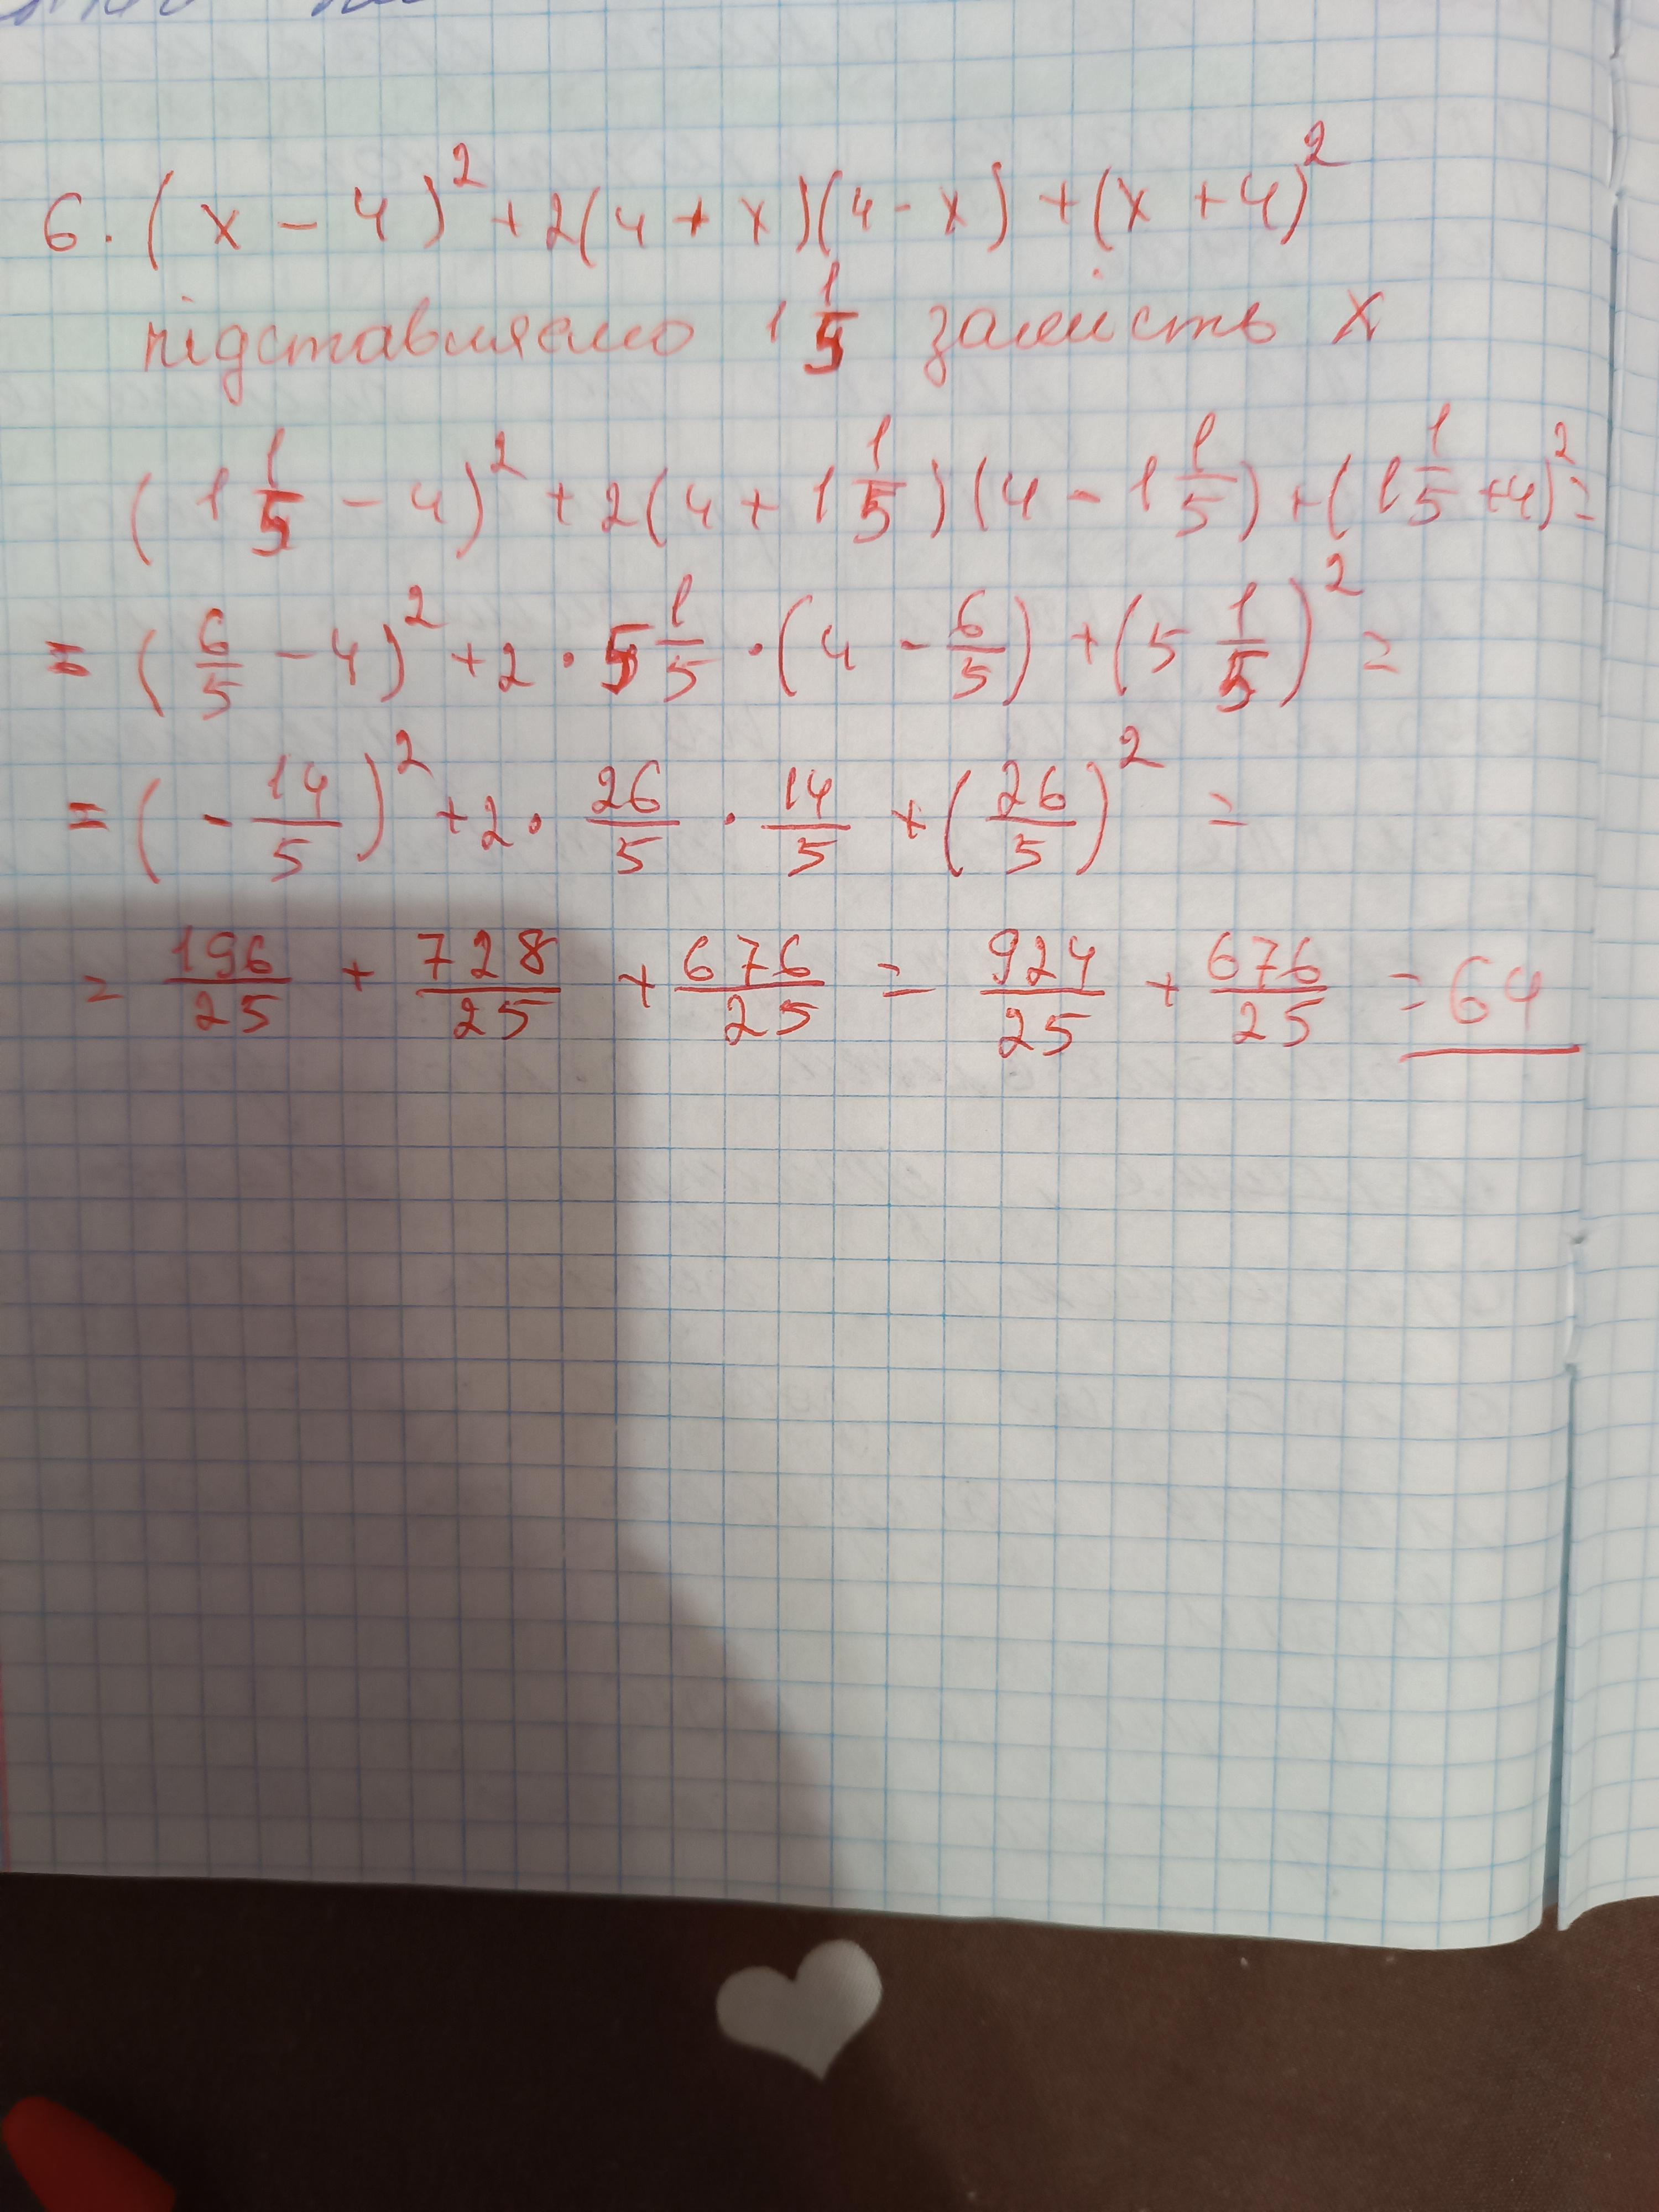 6. (x - 4)² + 2(4 + x)(4 - x) + (x + 4)²
підставляємо 1 1/5 замість x
(1 1/5 - 4)² + 2(4 + 1 1/5)(4 - 1 1/5) + (1 1/5 + 4)² =
= (6/5 - 4)² + 2 · 5 1/5 · (4 - 6/5) + (5 1/5)² =
= (- 14/5)² + 2 · 26/5 · 14/5 + (26/5)² =
= 196/25 + 728/25 + 676/25 = 924/25 + 676/25 = 64